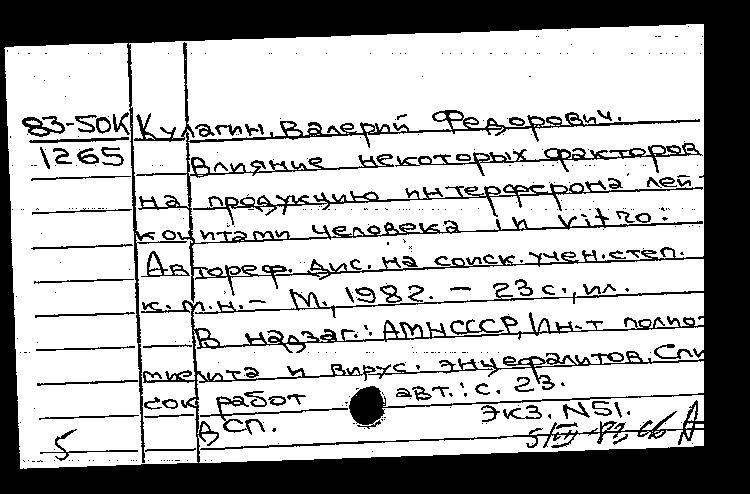 83-50К Кулагин, Валерий Федорович.
1265 Влияние некоторых факторов
на продукцию интерферона лей-
коцитами человека in vitro:
Автореф. дис. на соиск. учен. степ.
к. м. н. - М., 1982. - 23 с., ил.
В надзаг.: АМНСССР, Ин-т полио-
миелита и вирус. энцефалитов. Спи
сок работ авт.: с. 23.
ДСП. экз. N51.
5